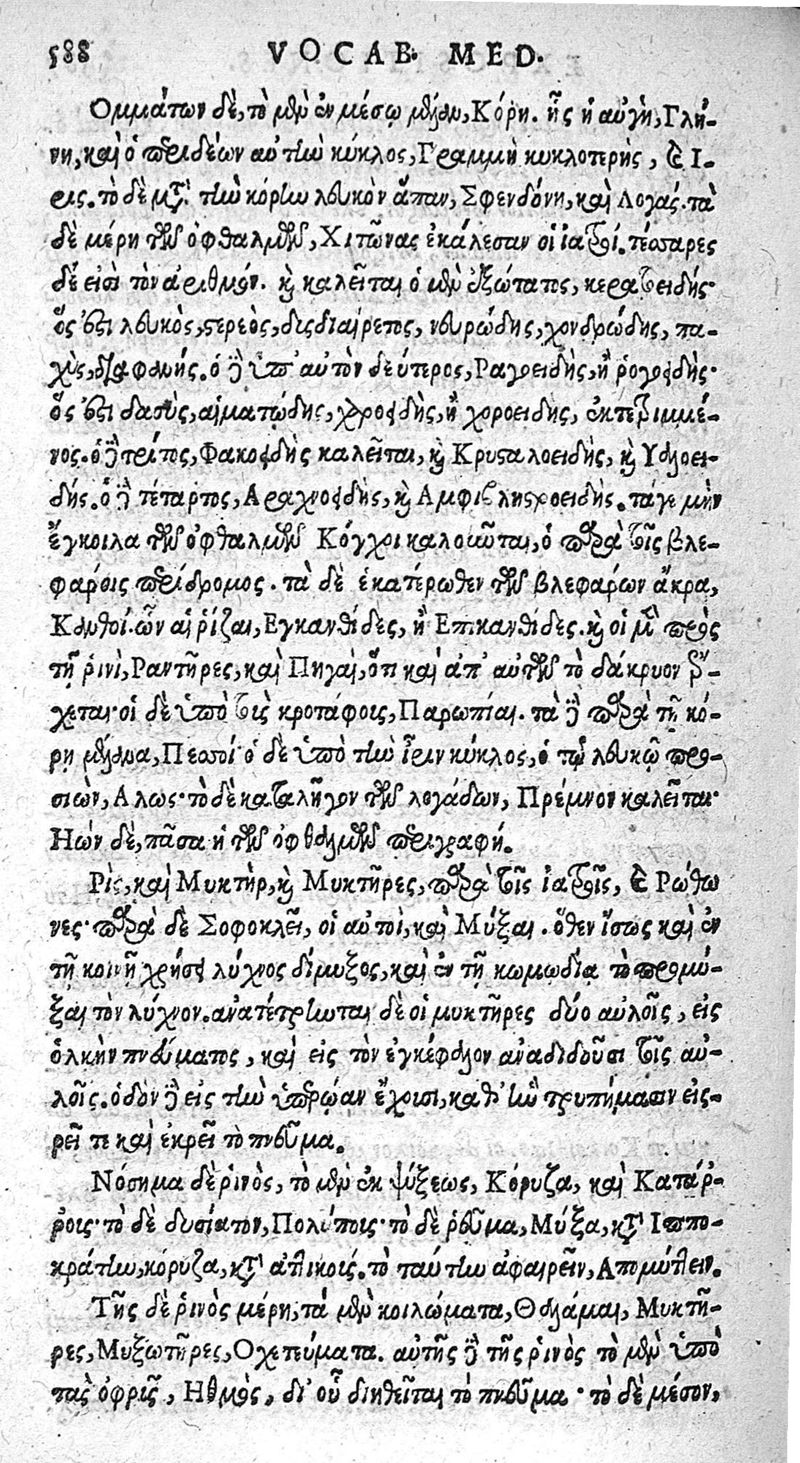 588 VOCAB. MED.
Ομμάτων δὲ, τὸ μὲν ἐν μέσῳ μέλαν, Κόρη. ἧς ἡ αὐγὴ, Γλή-
νη, καὶ ὁ περιθέων αὐτὴν κύκλος, Γραμμὴ κυκλοτερὴς, καὶ Ι-
ρις. τὸ δὲ μετὰ τὴν κόρην λευκὸν ἅπαν, Σφενδόνη, καὶ Λογάς. τὰ
δὲ μέρη τῶν ὀφθαλμῶν, Χιτῶνας ἐκάλεσαν οἱ ἰατροί. τέσσαρες
δέ εἰσι τὸν ἀριθμόν. καὶ καλεῖται ὁ μὲν ἐξώτατος, κερατοειδής·
ὅς ἐστι λευκὸς, στερεὸς, δισδιαίρετος, νευρώδης, χονδρώδης, πα-
χὺς, διαφανής. ὁ δὲ ὑπ' αὐτὸν δεύτερος, Ραγοειδὴς, ἢ ῥογοειδής·
ὅς ἐστι δασὺς, αἱματώδης, χροειδὴς, ἢ χοροειδὴς, ἐκτετριμμέ-
νος. ὁ δὲ τρίτος, Φακοειδὴς καλεῖται, καὶ Κρυσταλοειδὴς, καὶ Υαλοει-
δής. ὁ δὲ τέταρτος, Αραχνοειδὴς, καὶ Αμφιβληστροειδής. τάγε μὴν
ἔγκοιλα τῶν ὀφθαλμῶν Κόγχοι καλοῦνται, ὁ παρὰ τοῖς βλε-
φάροις περίδρομος. τὰ δὲ ἑκατέρωθεν τῶν βλεφάρων ἄκρα,
Κανθοί. ὧν αἱ ῥίζαι, Εγκανθίδες, ἢ Επικανθίδες. καὶ οἱ μὲν πρὸς
τῇ ῥινὶ, Ραντῆρες, καὶ Πηγαὶ, ὅτι καὶ ἀπ' αὐτῶν τὸ δάκρυον ἔρ-
χεται· οἱ δὲ ὑπὸ τοῖς κροτάφοις, Παρωπίαι. τὰ δὲ παρὰ τῇ κό-
ρη μέλανα, Πεσσοί· ὁ δὲ ὑπὸ τὴν ἶριν κύκλος, ὁ τῷ λευκῷ προ-
σιὼν, Αλως· τὸ δὲ καταλῆγον τῶν λογάδων, Πρέμνον καλεῖται·
Ηὼν δὲ, πᾶσα ἡ τῶν ὀφθαλμῶν περιγραφή.
Ρὶς, καὶ Μυκτὴρ, καὶ Μυκτῆρες, παρὰ τοῖς ἰατροῖς, καὶ Ρώθω
νες· παρὰ δὲ Σοφοκλεῖ, οἱ αὐτοὶ, καὶ Μύξαι. ὅθεν ἴσως καὶ ἐν
τῇ κοινῇ χρήσει λύχνος δίμυξος, καὶ ἐν τῇ κωμῳδίᾳ τὸ προμύ-
ξαι τὸν λύχνον. ἀνατέτρηνται δὲ οἱ μυκτῆρες δύο αὐλοῖς, εἰς
ὁλκὴν πνεύματος, καὶ εἰς τὸν ἐγκέφαλον ἀναδιδοῦσι τοῖς αὐ-
λοῖς. ὁδὸν δὲ εἰς τὴν ὑπερῴαν ἔχουσι, καθ' ἣν τρυπήμασιν εἰς-
ρεῖ τε καὶ ἐκρεῖ τὸ πνεῦμα.
Νόσημα δὲ ῥινὸς, τὸ μὲν ἐκ ψύξεως, Κόρυζα, καὶ Κατάρ-
ροις· τὸ δὲ δυσίατον, Πολύποις· τὸ δὲ ῥεῦμα, Μύξα, κατὰ Ιππο-
κράτην, κόρυζα, κατὰ ἀττικοίς. τὸ ταύτην ἀφαιρεῖν, Απομύττειν.
Τῆς δὲ ῥινὸς μέρη, τὰ μὲν κοιλώματα, Θαλάμαι, Μυκτῆ-
ρες, Μυξωτῆρες, Οχετεύματα. αὐτῆς δὲ τῆς ῥινὸς τὸ μὲν ὑπὸ
τὰς ὀφρῦς, Ηθμὸς, δι' οὗ διηθεῖται τὸ πνεῦμα· τὸ δὲ μέσον,